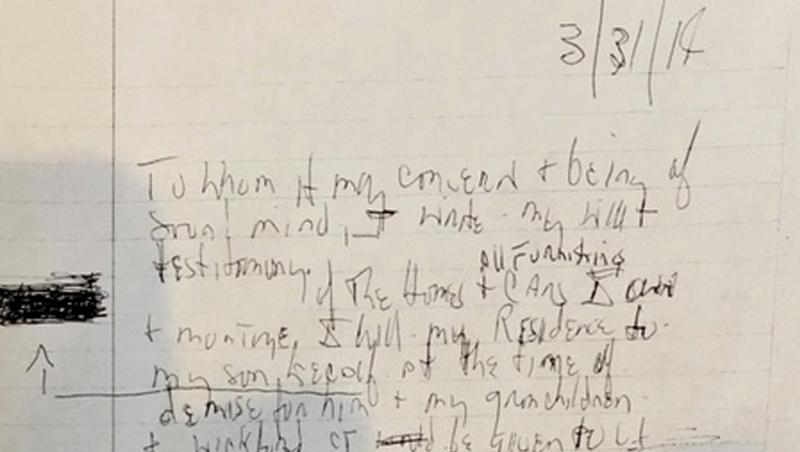 3/31/14
To whom it may concern + being of
mind, I write my will +
testimony.
all furnishing
of The Homes + CARS I own
+ mortgage, I will my Residence to
my son, at the time of
demise for him + my granchildren
+ be given to